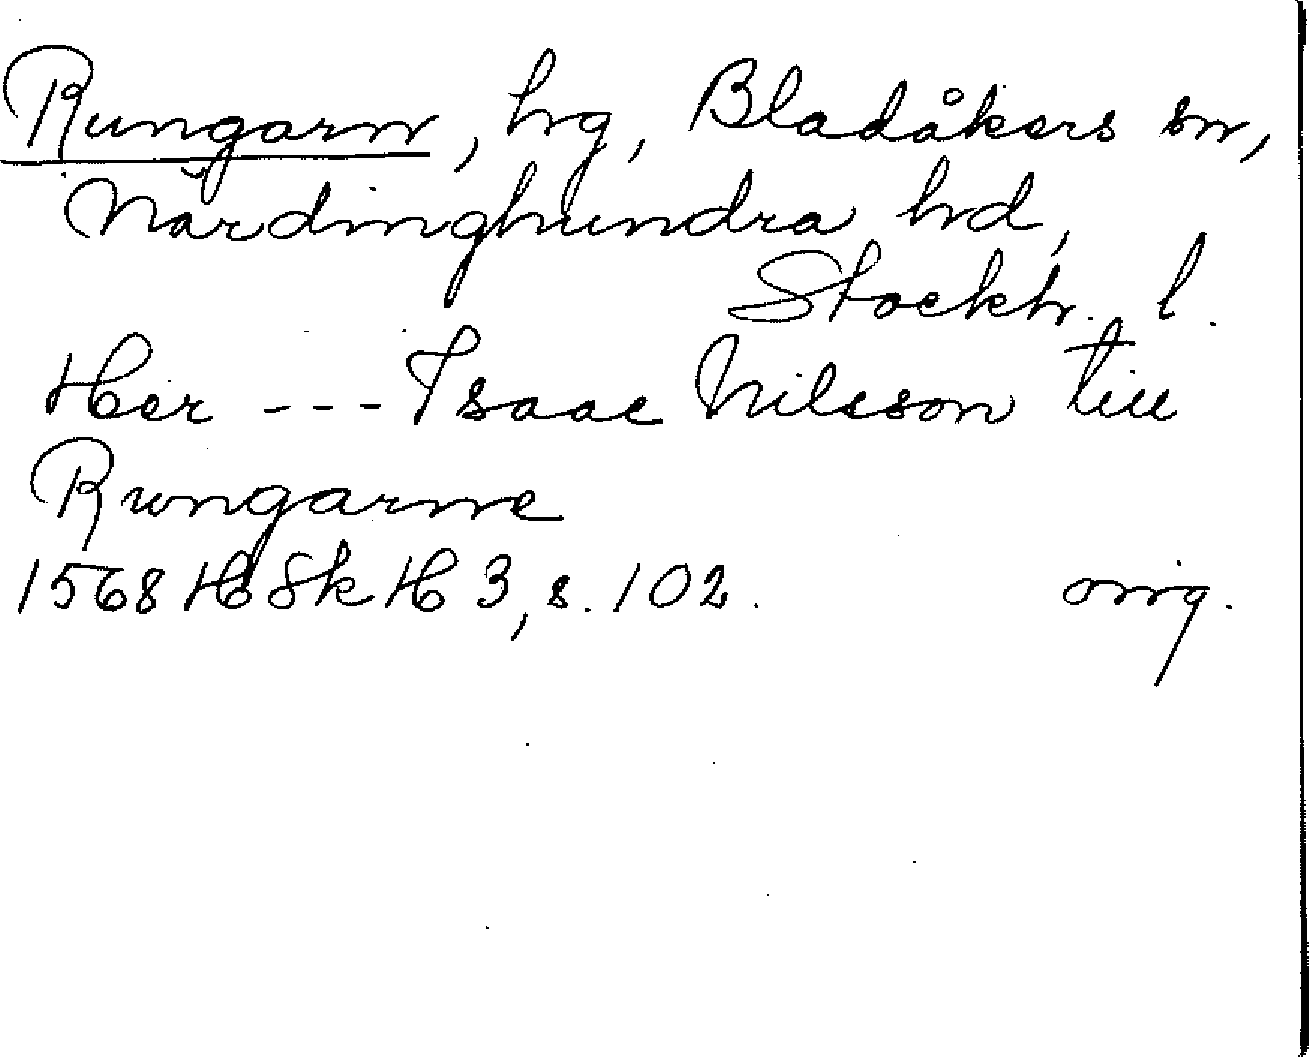 Rungarn, hg, Bladåkers sn,
Närdinghundra hd,
Stockh. l.
Her --- Isaac Nilsson till
Rungarne
1568 HSkH 3, s. 102. orig.